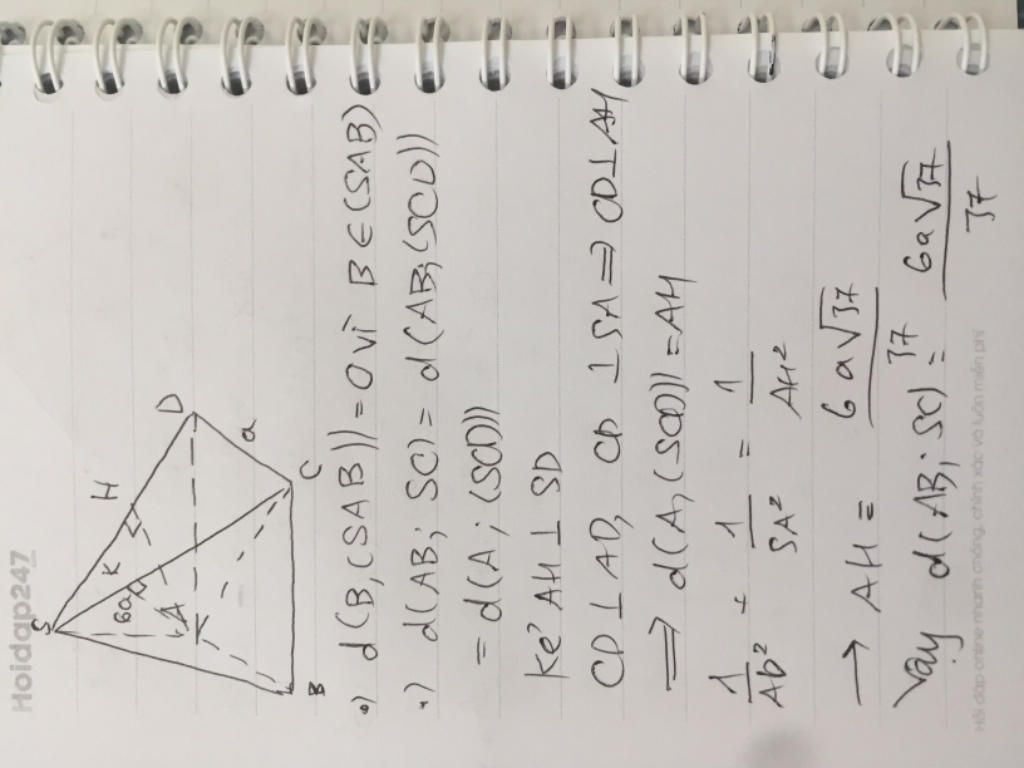 Hoidap247
S
H
D
K
6a
A
a
B
C
*) d(B;(SAB)) = 0 vì B ∈ (SAB)
*) d(AB; SC) = d(AB;(SCD))
= d(A;(SCD))
Kẻ AH ⊥ SD
CD ⊥ AD, CD ⊥ SA ⇒ CD ⊥ AH
⇒ d(A,(SCD)) = AH
1/AD² + 1/SA² = 1/AH²
→ AH = 6a√37/37
Vậy d(AB; SC) = 6a√37/37
Hỏi đáp online nhanh chóng, chính xác và luôn miễn phí